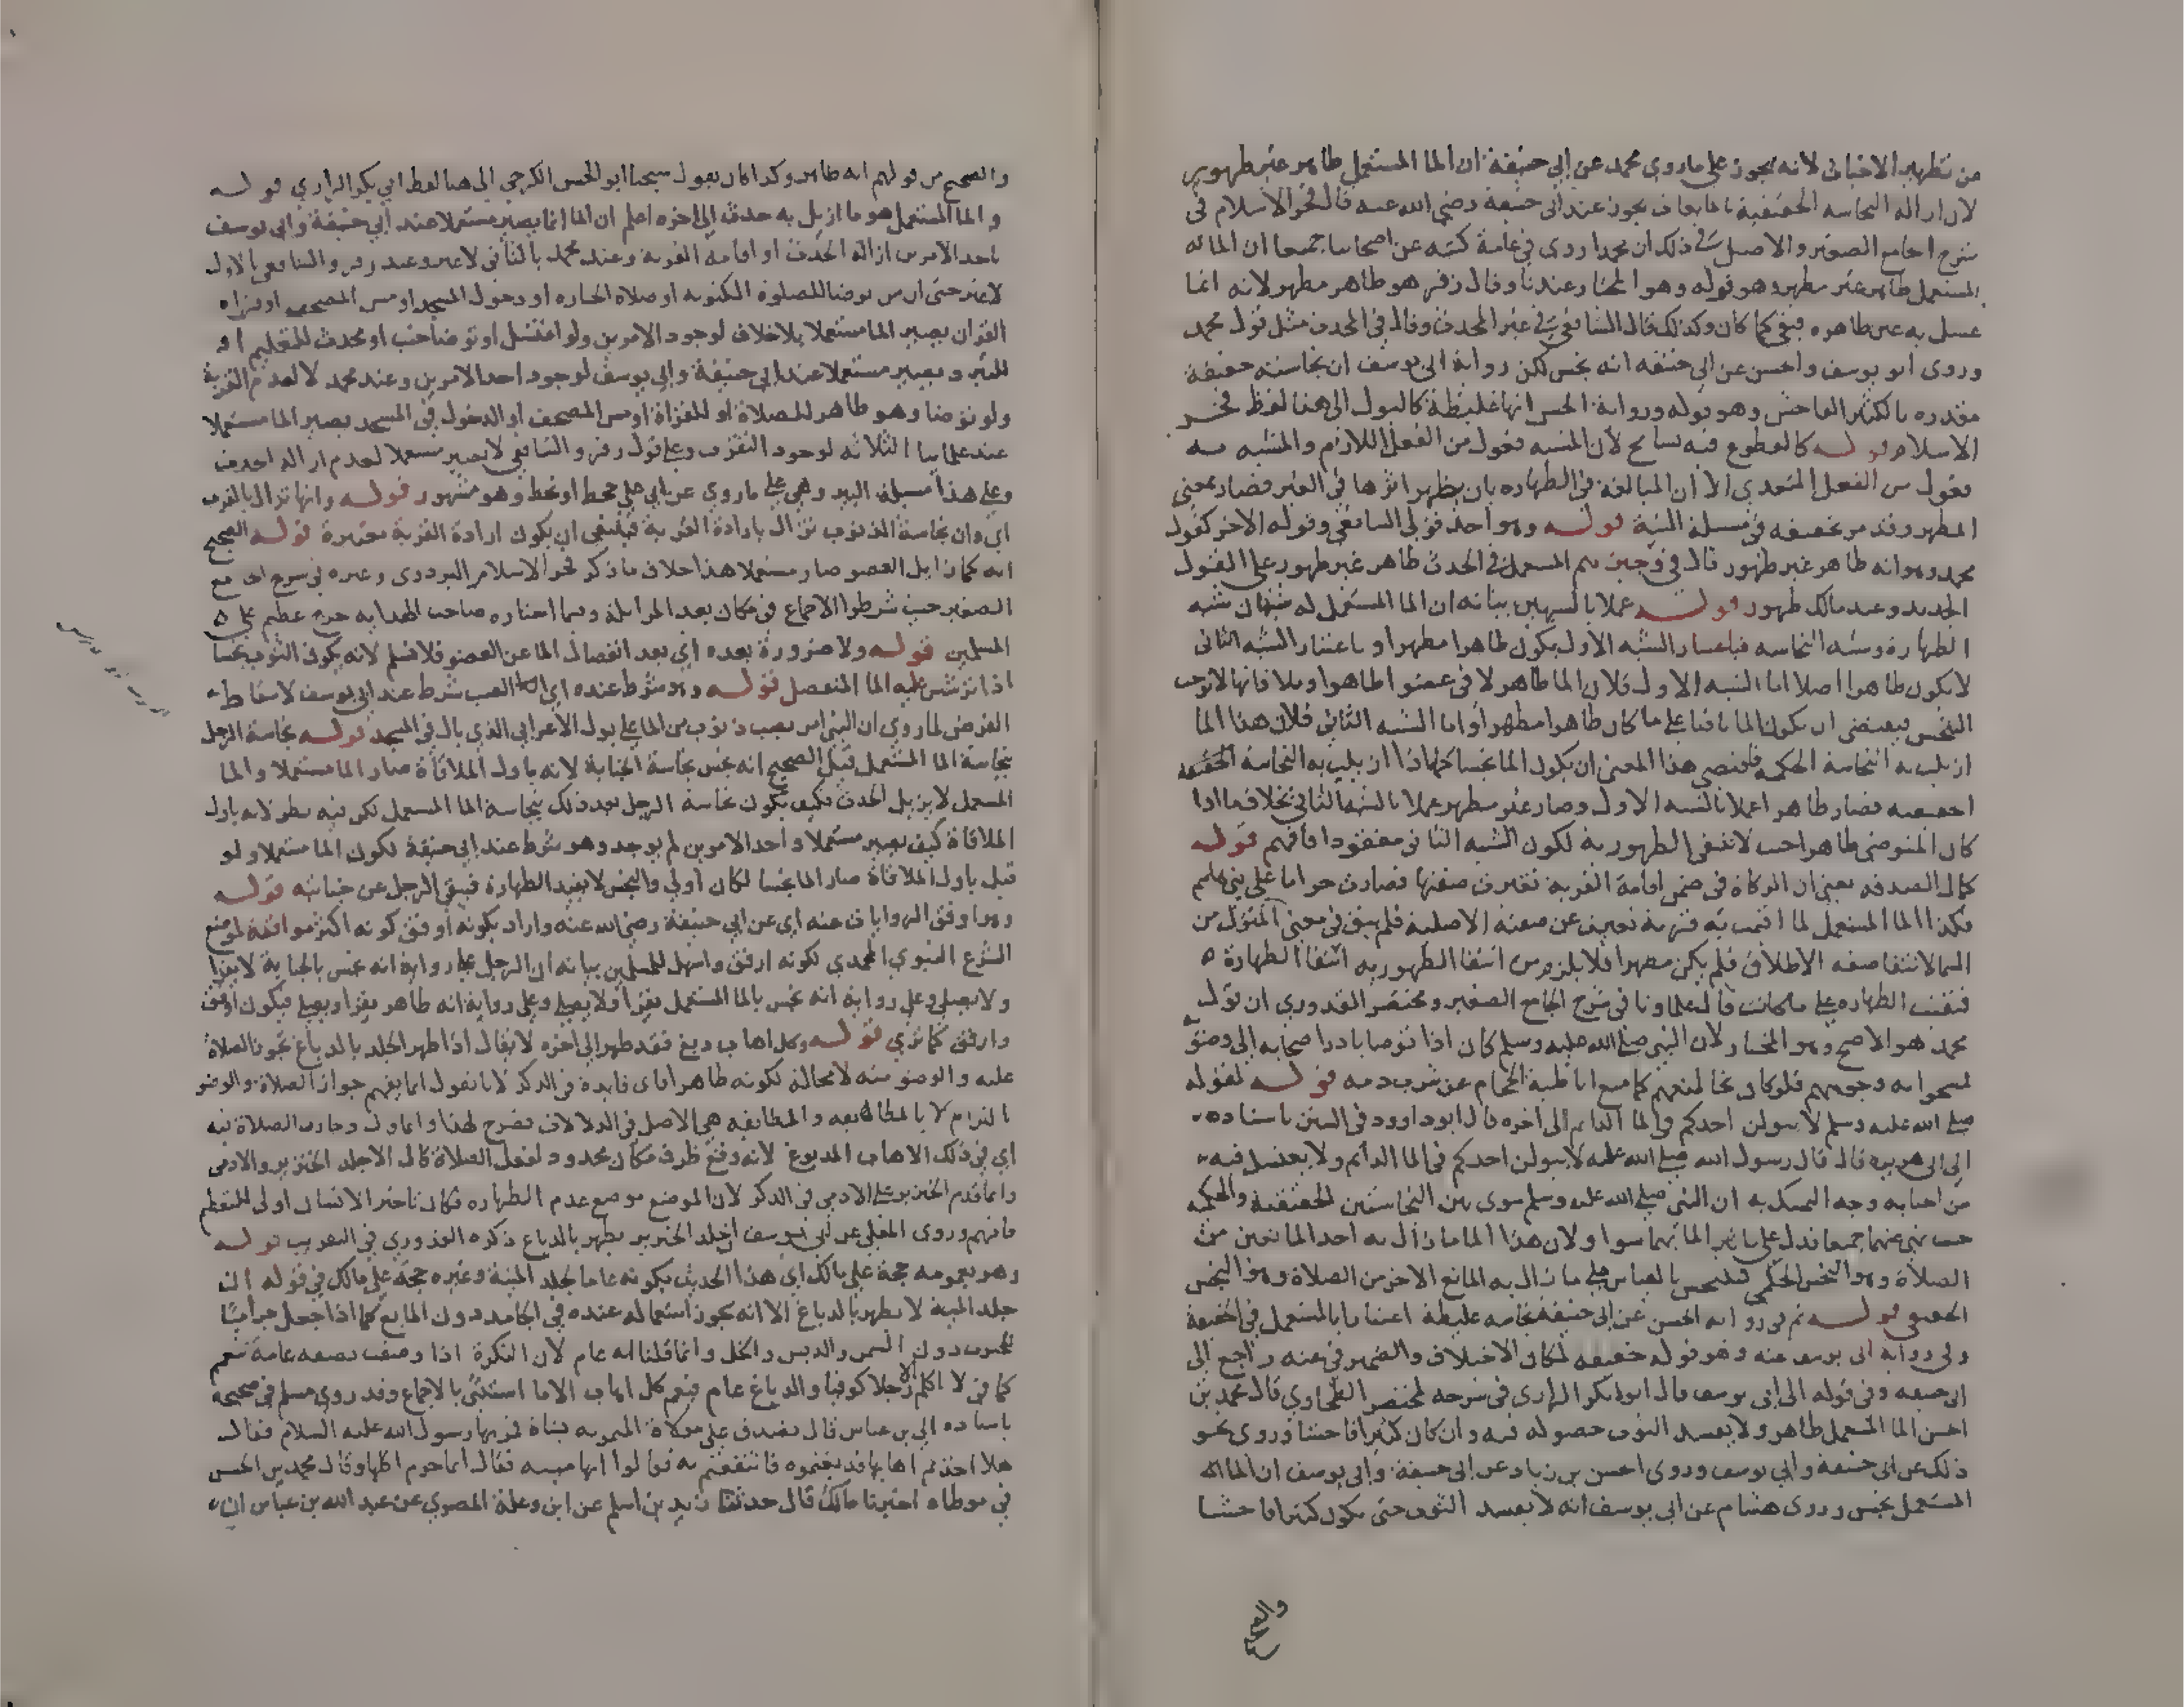 من تطهير الاخباث لانه يجوز على ماروى محمد عن ابي حنيفة ان الما المستعمل طاهر غير طهور
لان ازاله النجاسه الحقيقية بالمايعات يجوز عند ابى حنيفة رضي الله عنه قال فخر الاسلام فى
شرح الجامع الصغير والاصل في ذلك ان محمدا روى في عامة كتبه عن اصحابنا جميعا ان الما
المستعمل طاهر غير مطهر وهو قوله وهو المختار عندنا وقال زفر هو طاهر مطهر لانه انما
غسل به عين طاهره فبقى كما كان وكذلك قال الشافعي في غير المحدث وقال في المحدث مثل قول محمد
وروى ابو يوسف والحسن عن ابى حنيفه انه نجس لكن رواية ابى يوسف ان نجاسته خفيفة
مقدره بالكثير الفاحش وهو قوله ورواية الحسن انها غليظة كالبول الى هنا لفظ فخر
الاسلام قوله كالقطوع فيه تسامح لان المشبه فعول من الفعل اللازم والمشبه به
فعول من الفعل المتعدي الا ان المبالغه في الطهاره بان يظهر اثرها في الغير فصار بمعنى
المطهر وقد مر تحقيقه في مسئلة النية قوله وهو احد قولى الشافعي وقوله الاخر كقول
محمد وهو انه طاهر غير طهور قال في وجيزهم المستعمل في الحدث طاهر غير طهور على القول
الجديد وعند مالك طهور قوله عملا بالشبهين بيانه ان الما المستعمل له شبهان شبه
الطهارة وشبه النجاسه فباعتبار الشبه الاول يكون طاهرا مطهرا وباعتبار الشبه الثانى
لا يكون طاهرا اصلا اما الشبه الاول فلان الما طاهر لاقى عضوا طاهرا وملاقاتها لا توجب
التنجس فيقتضى ان يكون الما باقيا على ما كان طاهرا مطهرا واما الشبه الثاني فلان هذا الما
ازيلت به النجاسة الحكمية فاقتضى هذا المعنى ان يكون الما نجسا كما اذا ازيلت به النجاسة الحقيقية
الحقيقيه فصار طاهرا عملا بالشبه الاول وصار غير مطهر عملا بالشبه الثاني بخلاف ما اذا
كان المتوضى طاهرا حيث لا تنتفى الطهوريه لكون الشبه الثانى مفقودا فافهم قوله
كمال الصدقه يعني ان الزكاة في ضمن اقامة القربه تغيرت صفتها فصارت حراما على بني هاشم
فكذا الما المستعمل لما اقيمت به قربة تغيرت عن صفته الاصلية فلم يبق في معنى المنزل من
السما لانتفا صفه الاطلاق فلم يكن مطهرا فلا يلزم من انتفا الطهوريه انتفا الطهارة ه
فبقيت الطهاره على ما كانت قال علماونا في شرح الجامع الصغير ومختصر القدوري ان قول
محمد هو الاصح وهو المختار لان النبي صلى الله عليه وسلم كان اذا توضا بادر اصحابه الى وضوئه
لمسحوا به وجوههم فلو كان نجسا لمنعهم كما منع ابا طيبة الحجام عن شرب دمه قوله لقوله
صلى الله عليه وسلم لا يبولن احدكم في الما الدايم الى اخره قال ابو داوود في السنن باسناده
الى ابى هريره قال قال رسول الله صلى الله عليه لا يبولن احدكم في الما الدايم ولا يغتسل فيه
من الجنابه وجه التمسك به ان النبي صلى الله عليه وسلم سوى بين النجاستين الحقيقية والحكمية
حيث نهى عنهما جميعا فدل على تاثير الما بهما سوا ولان هذا الما ما زال به احد المانعين من
الصلاة وهو النجس الحكمى فتنجس بالقياس على ما زال به المانع الاخر من الصلاة وهو النجس
الحقيقي قوله ثم في رواية الحسن عن ابى حنيفة نجاسه غليظة اعتبارا بالمستعمل في الحقيقة
وفي رواية ابى يوسف عنه وهو قوله خفيفه لمكان الاختلاف والضمير في عنه راجع الى
ابى حنيفه وفى قوله الى ابى يوسف قال ابو بكر الرازى في شرحه لمختصر الطحاوي قال محمد بن
الحسن الما المستعمل طاهر ولا يفسد الثوب حصوله فيه وان كان كثيرا فاحشا وروى نحو
ذلك عن ابى حنيفة وابي يوسف وروى الحسن بن زياد عن ابى حنيفة وابى يوسف ان الما
المستعمل نجس وروى هشام عن ابي يوسف انه لا يفسد الثوب حتى يكون كثيرا فاحشا
والصحيح
والصحيح من قولهم انه طاهر وكذا كان يقول شيخنا ابو الحسن الكرخي الى هنا لفظ ابي بكر الرازي قوله
والما المستعمل هو ما ازيل به حدث الى اخره اعلم ان الما انما يصير مستعملا عند ابي حنيفة وابي يوسف
باحد الامرين ازالة الحدث او اقامة القربة وعند محمد بالثاني لا غير وعند زفر والشافعي بالاول
لا غير حتى ان من توضا للصلوة المكتوبه او صلاة الجنازه او دخول المسجد او مس المصحف او قراه
القران يصير الما مستعملا بلا خلاف لوجود الامرين ولو اغتسل او توضا جنب او محدث للتعليم او
للتبرد يصير مستعملا عند ابى حنيفة وابى يوسف لوجود احد الامرين وعند محمد لا لعدم القربة
ولو توضا وهو طاهر للصلاة او للقراة او مس المصحف او الدخول في المسجد يصير الما مستعملا
عند علمائنا الثلاثه لوجود التقرب وعلى قول زفر والشافعي لا يصير مستعملا لعدم ازالة الحدث
وعلى هذا مسئلة البير وهي على ماروي عن ابي علي جحط او نحط وهو مشهور قوله وانها تزال بالقرب
اي وان نجاسة الذنوب تزال بارادة القربة فينبغي ان يكون ارادة القربة معتبرة قوله الصحيح
انه كما زايل العضو صار مستعملا هذا خلاف ما ذكر فخر الاسلام البزدوى وغيره فى شرح الجامع
الصغير حيث شرطوا الاجتماع في مكان بعد المزايلة وفيما اختاره صاحب الهدايه حرج عظيم على
المسلمين قوله ولا ضرورة بعده اي بعد انفصال الما عن العضو فلا نسلم لانه يكون الثوب نجسا
اذا ترشش عليه الما المنفصل قوله وهو شرط عنده اي الصب شرط عند ابي يوسف لاسقاط
الفرض لما روي ان النبي امر بصب ذنوب من الما على بول الاعرابي الذي بال في المسجد قوله نجاسة الرجل
بنجاسة الما المستعمل قبل الصحيح انه نجس نجاسة الجنابة لانه باول الملاقاة صار الما مستعملا والما
المستعمل لا يزيل الحدث فكيف يكون نجاسة الرجل بعد ذلك بنجاسة الما المستعمل لكن فيه نظر لانه باول
الملاقاة كيف يصير مستعملا واحد الامرين لم يوجد وهو شرط عند ابي حنيفة لكون الما مستعملا ولو
قيل باول الملاقاة صار الما نجسا لكان اولى والنجس لا يفيد الطهارة فبقى الرجل عن جنابته قوله
وهو اوفق الروايات عنه اي عن ابي حنيفة رضي الله عنه واراد بكونه اوفق كونه اكثر موافقة لموضع
الشرع النبوي المحمدي لكونه ارفق واسهل للمسلمين بيانه ان الرجل على رواية انه نجس بالجنابة لا يقرا
ولا يصلي وعلى رواية انه نجس بالما المستعمل يقرا ولا يصلي وعلى رواية انه طاهر يقرا ويصلي فيكون اوفق
وارفق كما ترى قوله وكل اهاب دبغ فقد طهر الى اخره لا يقال اذا طهر الجلد بالدباغ تجوز الصلاة
عليه والوضو منه لا محالة لكونه طاهرا فاى فايدة في الذكر لانا نقول انما يفهم جواز الصلاة والوضو
بالتزام لا بالمطابقه والمطابقه هي الاصل في الدلالات فصرح لهذا وانما قال وجازت الصلاة فيه
اي في ذلك الاهاب المدبوغ لانه وقع ظرف مكان محدود لفعل الصلاة قال الا جلد الخنزير والادمى
وانما قدم الخنزير على الادمي في الذكر لان الموضع موضع عدم الطهاره فكان تاخير الانسان اولى للتعظيم
فافهم وروى المعلى عن ابي يوسف ان جلد الخنزير يطهر بالدباغ ذكره القدوري في التقريب قوله
وهو بعمومه حجة على مالك اي هذا الحديث بكونه عاما لجلد الميتة وغيره حجة على مالك في قوله ان
جلد الميتة لا يطهر بالدباغ الا انه يجوز استعماله عنده في الجامد دون المايع كما اذا جعل جرابا
للحبوب دون السمن والدبس والخل وانما قلنا انه عام لان النكرة اذا وصفت بصفه عامة تعم
كما في لا اكلم الا رجلا كوفيا والدباغ عام فيعم كل اهاب الا ما استثنى بالاجماع وقد روى مسلم في صحيحه
باسناده الى بن عباس قال تصدق على مولاة لميمونه بشاة فمر بها رسول الله عليه السلام فقال
هلا اخذتم اهابها فدبغتموه فانتفعتم به فقالوا انها ميته فقال انما حرم اكلها وقال محمد بن الحسن
في موطاه اخبرنا مالك قال حدثنا زيد بن اسلم عن ابن وعلة المصري عن عبد الله بن عباس ان